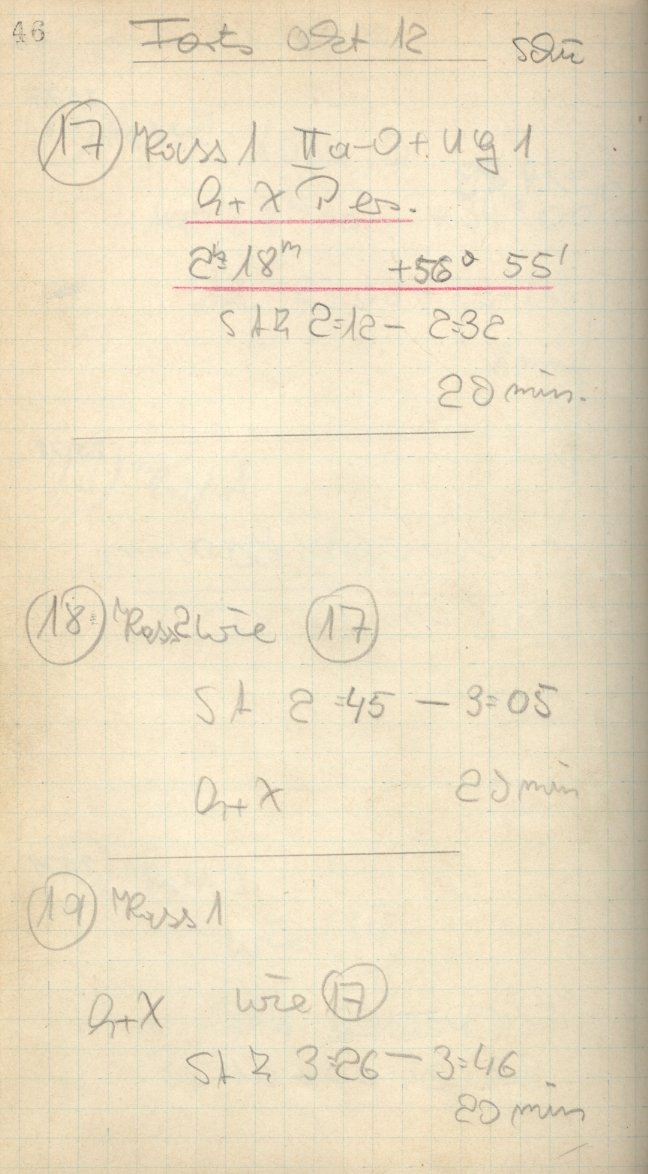 46
Forts Okt 12 Schü
17 Kass 1 IIa-O + UG 1
h + χ Per.
2h 18m +56° 55'
StZ 2=12 - 2=32
20 min.
18 Kass 2 wie 17
St 2=45 - 3=05
h + χ 20 min
19 Kass 1
h + χ wie 17
StZ 3=26 - 3=46
20 min